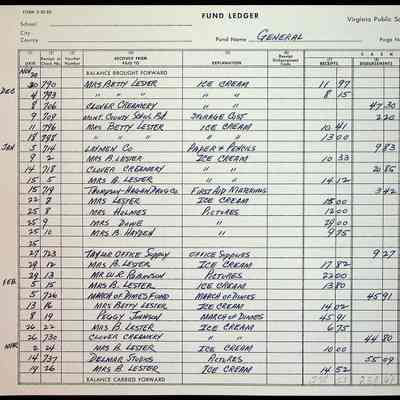 FORM 3-10-50
FUND LEDGER
Virginia Public Sc
School
City
County
Fund Name GENERAL
Page No.
CASH
(1) (2) (3) (4) (5) (6) (7) (8)
DATE Receipt or Check No. Voucher Number RECEIVED FROM PAID TO EXPLANATION RECEIPTS DISBURSEMENTS
NOV
30 BALANCE BROUGHT FORWARD
DEC 30 790 MRS BETTY LESTER ICE CREAM 11 97
4 793 " " " " " 8 15
8 706 CLOVER CREAMERY 47 30
9 709 MONT. COUNTY SCHOOL BD. STORAGE COST 2 20
11 796 MRS BETTY LESTER ICE CREAM 10 41
18 798 " " " " 13 00
JAN 5 714 LAYMEN CO PAPER & PENCILS 9 83
9 2 MRS B. LESTER ICE CREAM 10 33
14 718 CLOVER CREAMERY " " 20 85
15 5 MRS B. LESTER " " 14 12
15 719 THOMPSON-HAGAN DRUG CO. FIRST AID MATERIALS 3 42
22 8 MRS LESTER ICE CREAM 15 00
25 8 MRS HOLMES PICTURES 12 00
25 9 MRS DOWE " 29 00
25 10 MRS B. HAYDEN " 9 75
25
27 723 TAYLOR OFFICE SUPPLY OFFICE SUPPLIES 9 27
29 12 MRS B. LESTER ICE CREAM 17 82
29 13 MR W.R. ROBINSON PICTURES 22 00
FEB 5 15 MRS B. LESTER ICE CREAM 13 80
5 726 MARCH OF DIMES FUND MARCH OF DIMES 45 91
13 16 MRS BETTY LESTER ICE CREAM 14 02
18 19 PEGGY JOHNSON MARCH OF DIMES 45 91
26 22 MRS B. LESTER ICE CREAM 6 75
26 730 CLOVER CREAMERY " " 44 80
MAR 2 24 MRS B. LESTER ICE CREAM 10 00
14 737 DELMAR STUDIOS PICTURES 55 09
19 26 MRS B. LESTER ICE CREAM 14 52
BALANCE CARRIED FORWARD